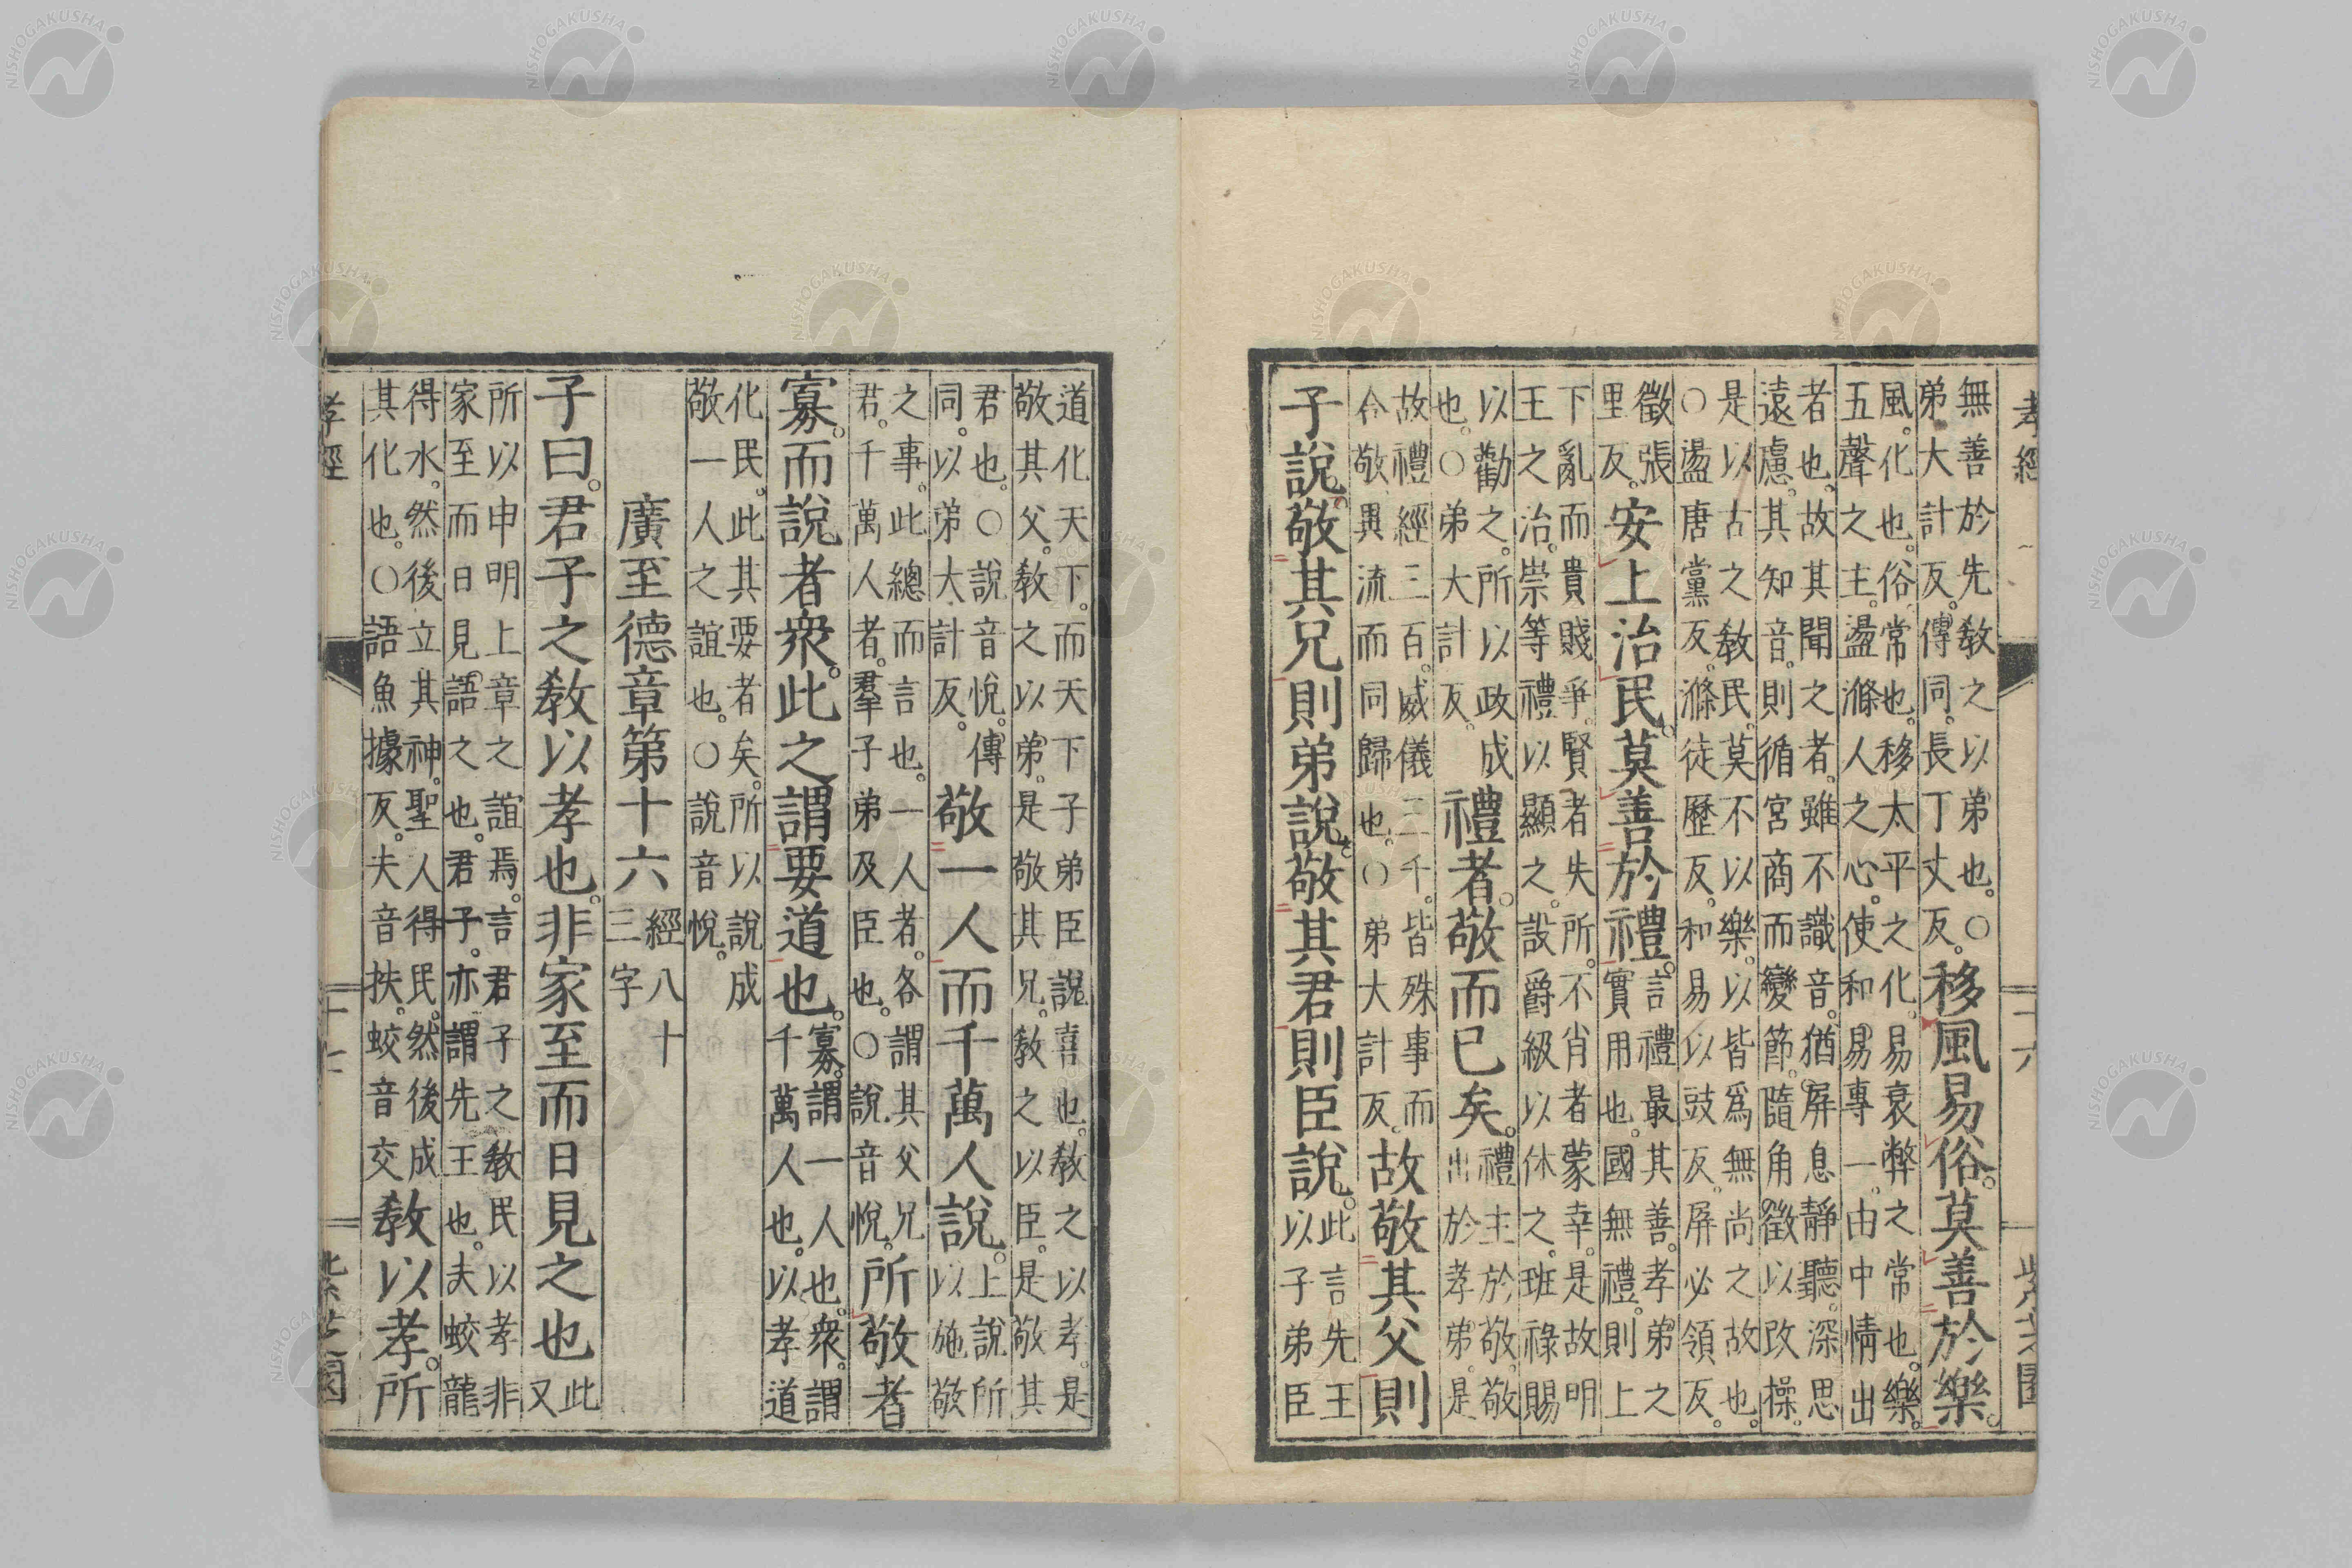 孝經 十六 紫芝園
無善於先教之以弟也。○弟大計反。傳同。長丁丈反。移風易俗。莫善於樂。
風。化也。俗。常也。移太平之化。易衰弊之常也。樂。五聲之主。盪滌人之心。使和易專一。由中情出
者也。故其聞之者。雖不識音。猶屏息靜聽。深思遠慮。其知音。則循宮商而變節。隨角徵以改操。
是以古之教民。莫不以樂。以皆爲無尚之故也。○盪唐黨反。滌徒歷反。和易以豉反。屏必領反。
徵張里反。安上治民。莫善於禮。言禮最其善。孝弟之實用也。國無禮。則上
下亂而貴賤爭。賢者失所。不肖者蒙幸。是故明王之治。崇等禮以顯之。設爵級以休之。班祿賜
以勸之。所以政成也。○弟大計反。禮者。敬而已矣。禮主於敬。敬出於孝弟。是
故禮經三百。威儀三千。皆殊事而合敬。異流而同歸也。○弟大計反。故敬其父則
子說。敬其兄則弟說。敬其君則臣說。此言先王以子弟臣
道化天下。而天下子弟臣說喜也。教之以孝。是敬其父。教之以弟。是敬其兄。教之以臣。是敬其
君也。○說音悅。傳同。以弟大計反。敬一人而千萬人說。上說所以施敬
之事。此總而言也。一人者。各謂其父兄君。千萬人者。羣子弟及臣也。○說音悅。所敬者
寡。而說者衆。此之謂要道也。寡。謂一人也。衆。謂千萬人也。以孝道
化民。此其要者矣。所以說成敬一人之誼也。○說音悅。
廣至德章第十六 經八十三字
子曰。君子之教以孝也。非家至而日見之也 此又
所以申明上章之誼焉。言君子之教民以孝。非家至而日見語之也。君子。亦謂先王也。夫蛟龍
得水。然後立其神。聖人得民。然後成其化也。○語魚據反。夫音扶。蛟音交 教以孝。所
孝經 十七 紫芝園